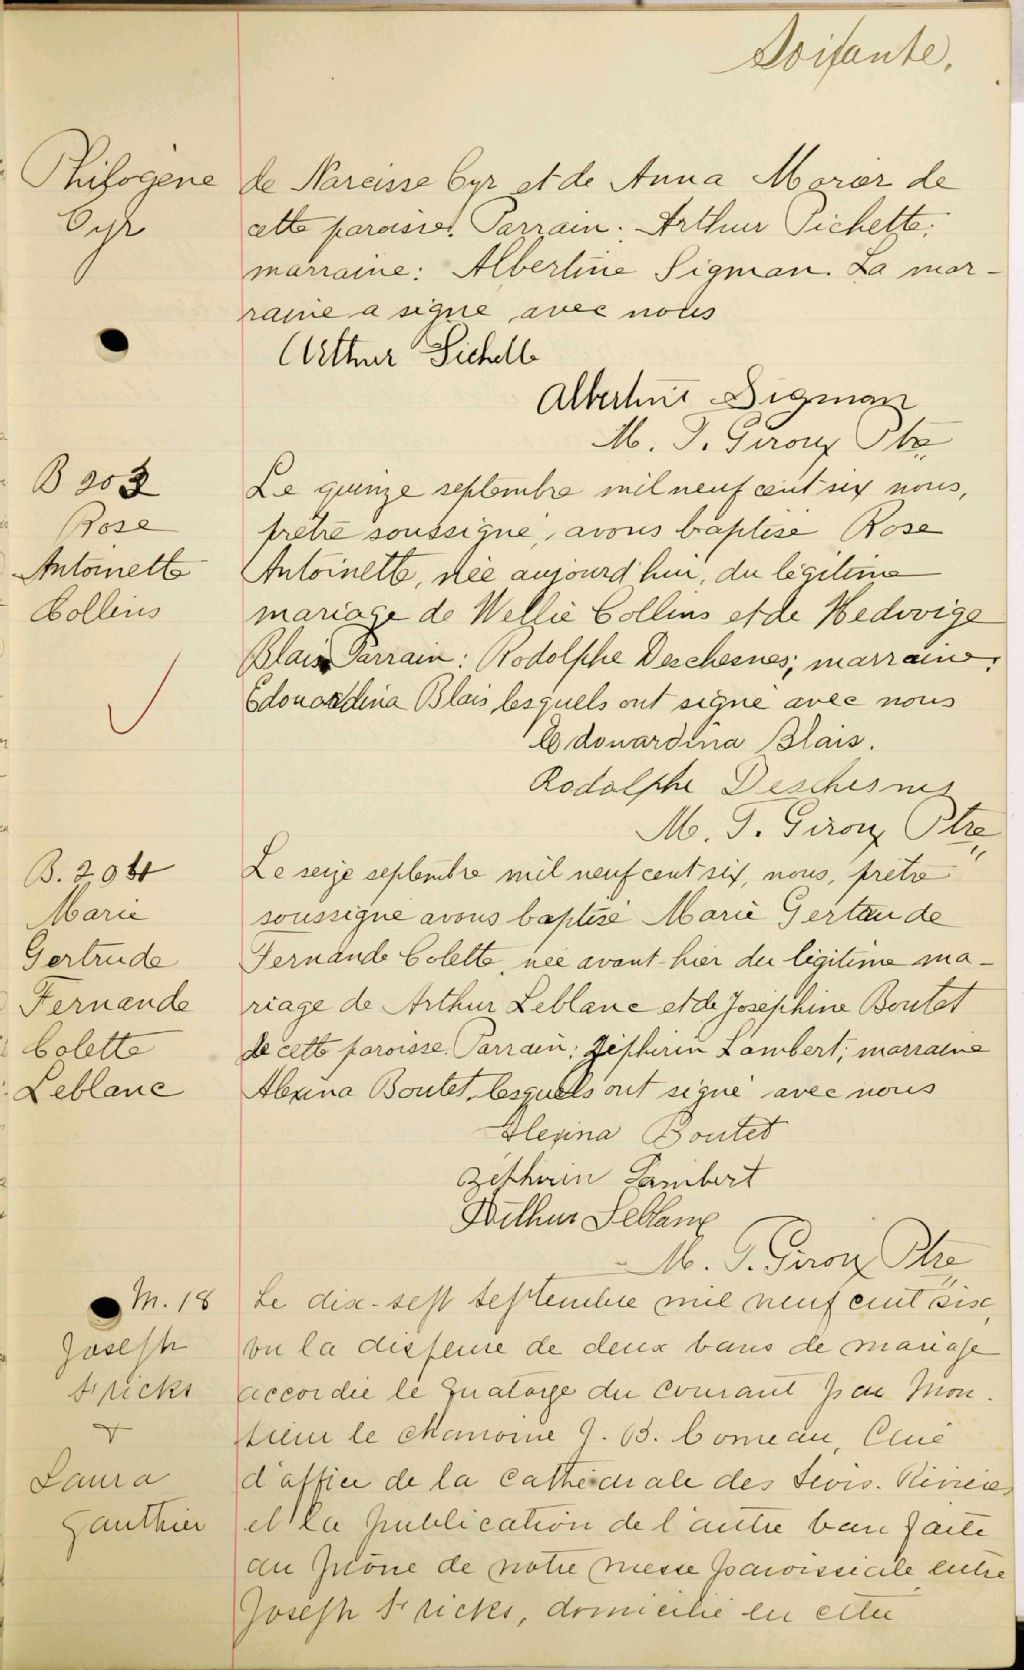 Soixante.
Philogène
Cyr
de Narcisse Cyr et de Anna Morier de
cette paroisse. Parrain: Arthur Pichette;
marraine: Albertine Sigman. La mar-
raine a signé avec nous
Arthur Pichette
Albertine Sigman
M. T. Giroux Ptre
B 203
Rose
Antoinette
Collins
Le quinze septembre mil neuf cent six nous,
prêtre soussigné, avons baptisé Rose
Antoinette, née aujourd'hui, du légitime
mariage de Wellie Collins et de Hedwige
Blais Parrain: Rodolphe Deschesnes; marraine:
Edouardina Blais lesquels ont signé avec nous
Edouardina Blais.
Rodolphe Deschesnes
M. T. Giroux Ptre
B. 204
Marie
Gertrude
Fernande
Colette
Leblanc
Le seize septembre mil neuf cent six, nous, prêtre
soussigné avons baptisé Marie Gertrude
Fernande Colette, née avant-hier du légitime ma-
riage de Arthur Leblanc et de Joséphine Boutet
de cette paroisse. Parrain: Zéphirin Lambert; marraine
Alexina Boutet, lesquels ont signé avec nous
Alexina Boutet
Zéphirin Lambert
Arthur Leblanc
M. T. Giroux Ptre
M. 18
Joseph
Fricks
+
Laura
Gauthier
Le dix-sept septembre mil neuf cent six,
vu la dispense de deux bans de mariage
accordée le quatorze du courant par Mon-
sieur le chanoine J. B. Comeau, Curé
d'office de la cathédrale des Trois-Rivières
et la publication de l'autre ban faite
au prône de notre messe paroissiale entre
Joseph Fricks, domicilié en cette